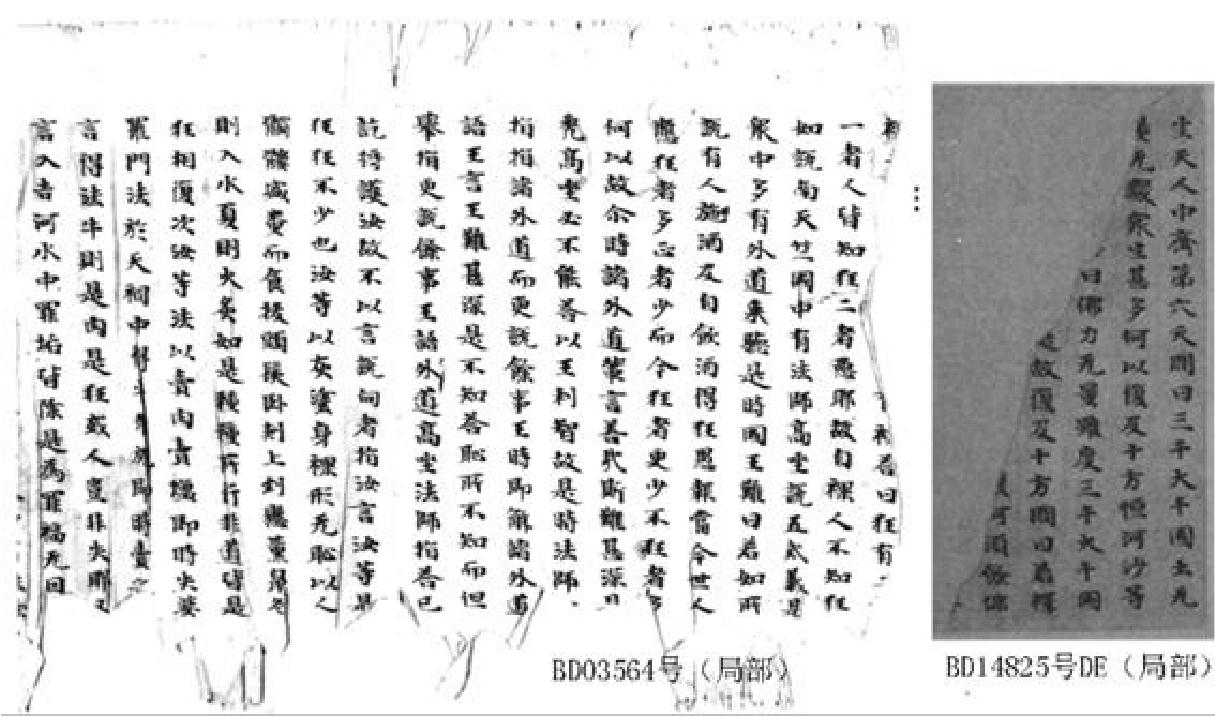 生天人中齊第六天問曰三千大千國土无
量无數衆生甚多何以復及十方恒河沙等
曰佛力无量雖度三千大千國
是故復及十方問曰若釋
何須餘佛
…
答曰狂有
一者人皆知狂二者惡耶故自裸人不知狂
如說南天竺國中有法師高坐說五戒義是
衆中多有外道來聽是時國王難曰若如所
說有人施酒及自飲酒得狂愚報當今世人
應狂者多正者少而今狂者更少不狂者多
何以故尒時諸外道輩言善哉斯難甚深
禿高坐必不能答以王利智故是時法師
指指諸外道而更說餘事王時即解諸外道
語王言王難甚深是不知答恥所不知而但
舉指更說餘事王語外道高坐法師指答已
訖將護汝故不以言說向者指汝言汝等是
狂狂不少也汝等以灰塗身裸形无恥以人
髑髏盛糞而食拔頭髮臥刺上倒懸熏鼻冬
則入水夏則火炙如是種種所行非道皆是
狂相復次汝等法以賣肉賣鹽即時失婆
羅門法於天祠中得牛即時賣之
言得法牛則是肉是狂惑人豈非失耶又
言入吉河水中罪垢皆除是為罪福无因
BD03564号（局部）
BD14825号DE（局部）